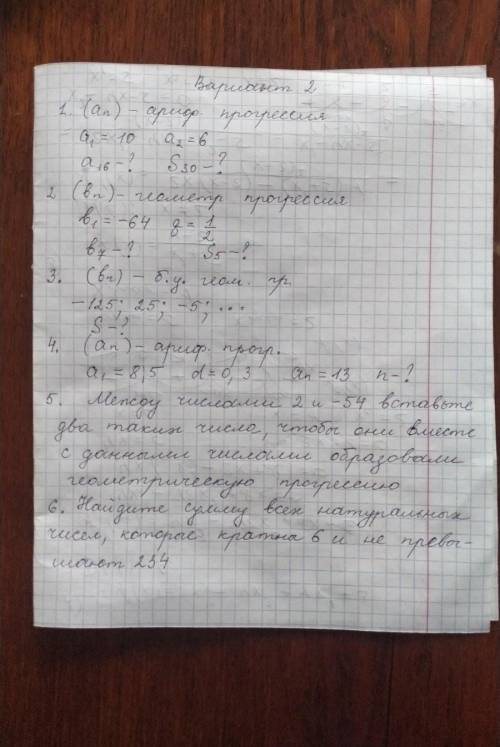 Вариант 2
1. (an) - ариф. прогрессия
a1 = 10 a2 = 6
a16 - ? S30 - ?
2 (bn) - геометр прогрессия
b1 = -64 q = 1/2
b7 - ? S5 - ?
3. (bn) - б.у. геом. пр.
-125; 25; -5; ...
S - ?
4. (an) - ариф. прогр.
a1 = 8,5 d = 0,3 an = 13 n - ?
5. Между числами 2 и -54 вставьте
два таких числа, чтобы они вместе
с данными числами образовали
геометрическую прогрессию
6. Найдите сумму всех натуральных
чисел, которые кратна 6 и не превы-
шают 234